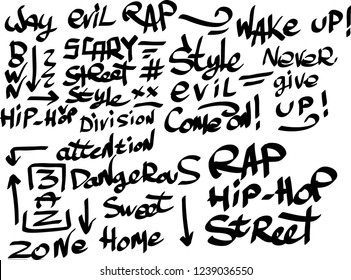 Way evil RAP WAKE UP!
B SCARY Style Never
W Street # evil give
N Style xx Come on! UP!
HiP-HOP Division
attention
3 Dangerous RAP
A Sweet HiP-HOP
Z Street
ZONE Home
shutterstock.com · 1239036550